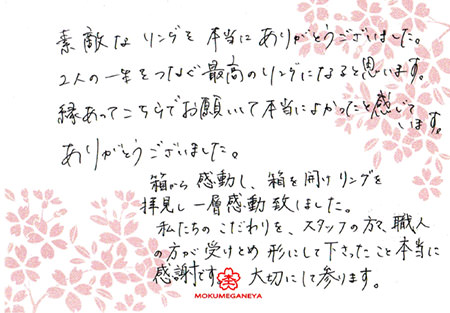 素敵なリングを本当にありがとうございました。
2人の一生をつなぐ最高のリングになると思います。
縁あってこちらでお願いして本当によかったと感じて
います。
ありがとうございました。
箱から感動し、箱を開けリングを
拝見し一層感動致しました。
私たちのこだわりを、スタッフの方々、職人
の方が受けとめ形にして下さったこと本当に
感謝です。大切にして参ります。
MOKUMEGANEYA